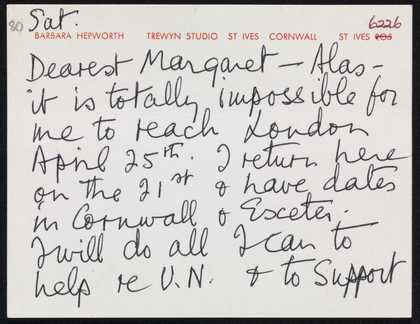 80
Sat.
6226
BARBARA HEPWORTH TREWYN STUDIO ST IVES CORNWALL ST IVES
Dearest Margaret — Alas —
it is totally impossible for
me to reach London
April 25th. I return here
on the 21st & have dates
in Cornwall & Exceter.
I will do all I can to
help re U.N. & to Support